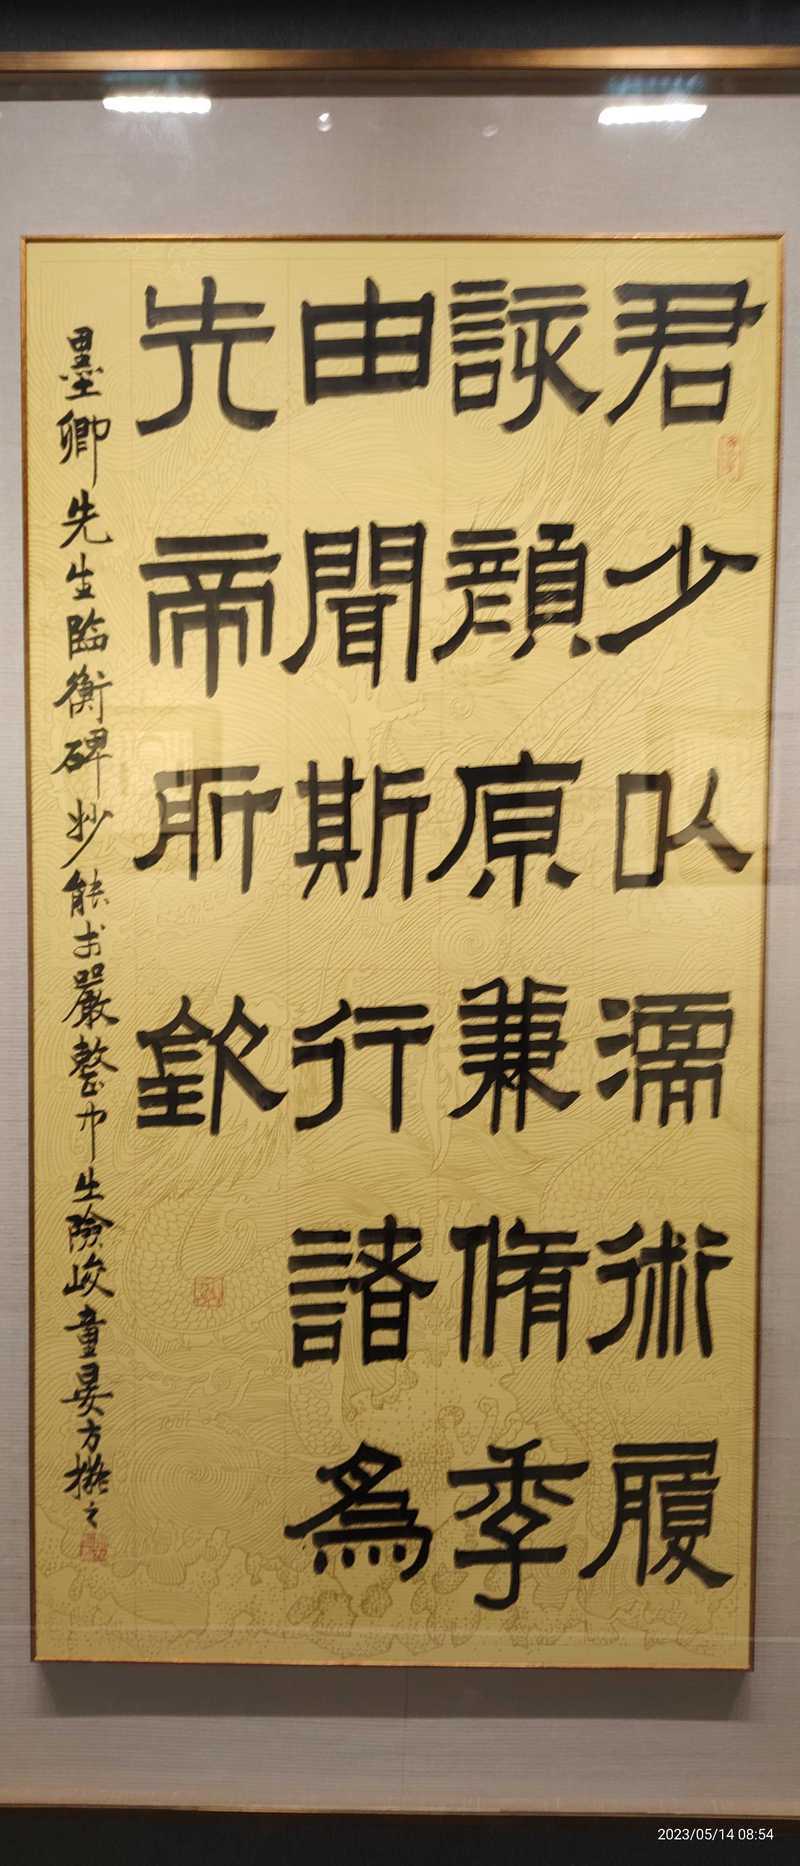 君少以濡術履
詠顏原兼脩季
由聞斯行諸為
先帝所欽
墨卿先生臨衡碑妙能於嚴整中生險峻童晏方擬之
2023/05/14 08:54